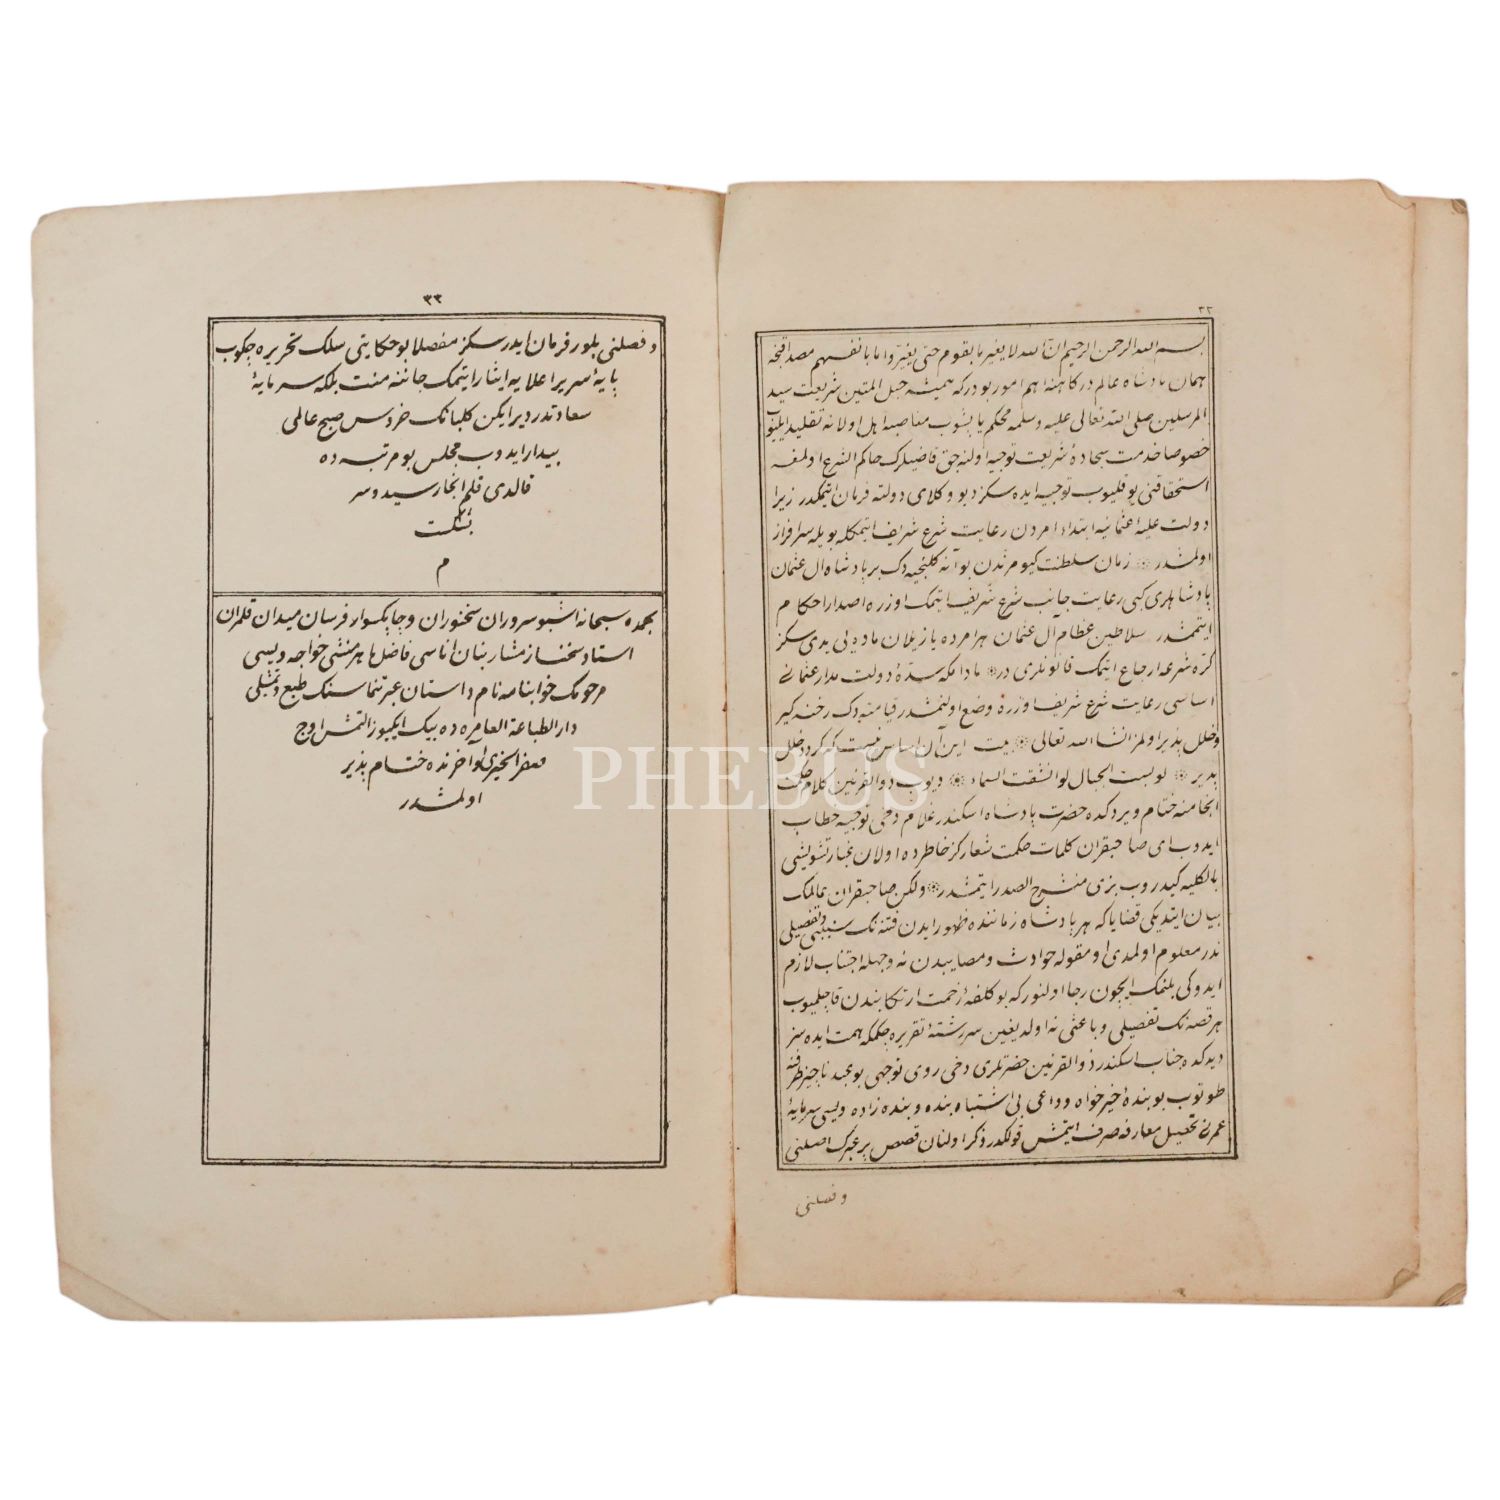 ٣٢
بسم الله الرحمن الرحيم ان الله لا يغير ما بقوم حتى يغيروا ما بانفسهم مصداقنجه
همان پادشاه عالم دركاهنه اهم امور بودركه هميشه حبل المتين شريعت سيد
المرسلين صلى الله تعالى عليه وسلمه محكم ياپشوب مناصبه اهل اولانه تقليد ايليوب
خصوصا خدمت سجادهٔ شريعت توجيه اولنه جق قاضيلرك حاكم الشرع اولمغه
استحقاقنى يوقليوب توجيه ايده سكز ديو وكلاى دولته فرمان ايتمكدر زيرا
دولت عليهٔ عثمانيه ابتداء امردن رعايت شرع شريف ايتمكله بويله سرافراز
اولمشدر زمان سلطنت كيومرثدن بو آنه كلنجيه دك بر پادشاه ال عثمان
پادشاهلرى كبى رعايت جانب شرع شريف ايتمك اوزره اصدار احكام
ايتمشدر سلاطين عظام ال عثمان هر امرده يازيلان ماده يى يدى سكز
كره شرعه ارجاع ايتمك قانونلرى در مادامكه سدهٔ دولت مدار عثمانى
اساسى رعايت شرع شريف اوزره وضع اولنمشدر قيامته دك رخنه كير
وخلل پذير اولمز انشا الله تعالى بيت اين آن اساس نيست كه كردد خلل
پذير لو بست الجبال لو انشقت السماء ديوب ذوالقرنين كلام حكمت
انجامنه ختام ويردكده حضرت پادشاه اسكندر غلام دخى توجيه خطاب
ايدوب اى صاحبقران كلمات حكمت شعاركز خاطرده اولان غبار تشويشى
بالكليه كيدروب بزى منشرح الصدر ايتمشدر ولكن صاحبقران ممالك
بيان ايتديكى قضاياكه هر پادشاه زماننده ظهور ايدن فتنه نك سببى وتفصيلى
ندر معلوم اولمدى او مقوله حوادث ومصايبدن نه وجهله اجتناب لازم
ايدوكى بلنمك ايچون رجا اولنوركه بو كلفهٔ زحمت ارتكابندن قاچلميوب
هر قصه نك تفصيلى وباعثى نه اولديغين سررشتهٔ تقريره چكمكه همت ايده سز
ديدكده جناب اسكندر ذوالقرنين حضرتلرى دخى روى توجهى بو عبد ناچيز طرفنه
طوتوب بو بندهٔ خير خواه وداعى بى اشتباه بنده وبنده زاده ويسى سرمايهٔ
عمرى تحصيل معارفه صرف ايتمش قولكدر ذكر اولنان قصص پر عبرك اصلنى
وفصلنى
٣٣
وفصلنى بلور فرمان ايدر سكز مفصلا بو حكايتى سلك تحريره چكوب
پايهٔ سرير اعلايه ايثار ايتمك جاننه منت بلكه سرمايهٔ
سعادتدر دير ايكن كلبانك خروس صبح عالمى
بيدار ايدوب مجلس بو مرتبه ده
قالدى قلم انجا رسيد وسر
بشكست
م
بحمده سبحانه اشبو سروران سخنوران وچاپكسوار فرسان ميدان قلمران
استاد سخنساز مشار بنان اناسى فاضل ماهر منشئ خواجه ويسى
مرحومك خوابنامه نام داستان عبرتنماسنك طبع وتمثيلى
دار الطباعة العامره ده بيك ايكيوز التمش اوچ
صفر الخيرى اواخرنده ختام پذير
اولمشدر
PHEBUS